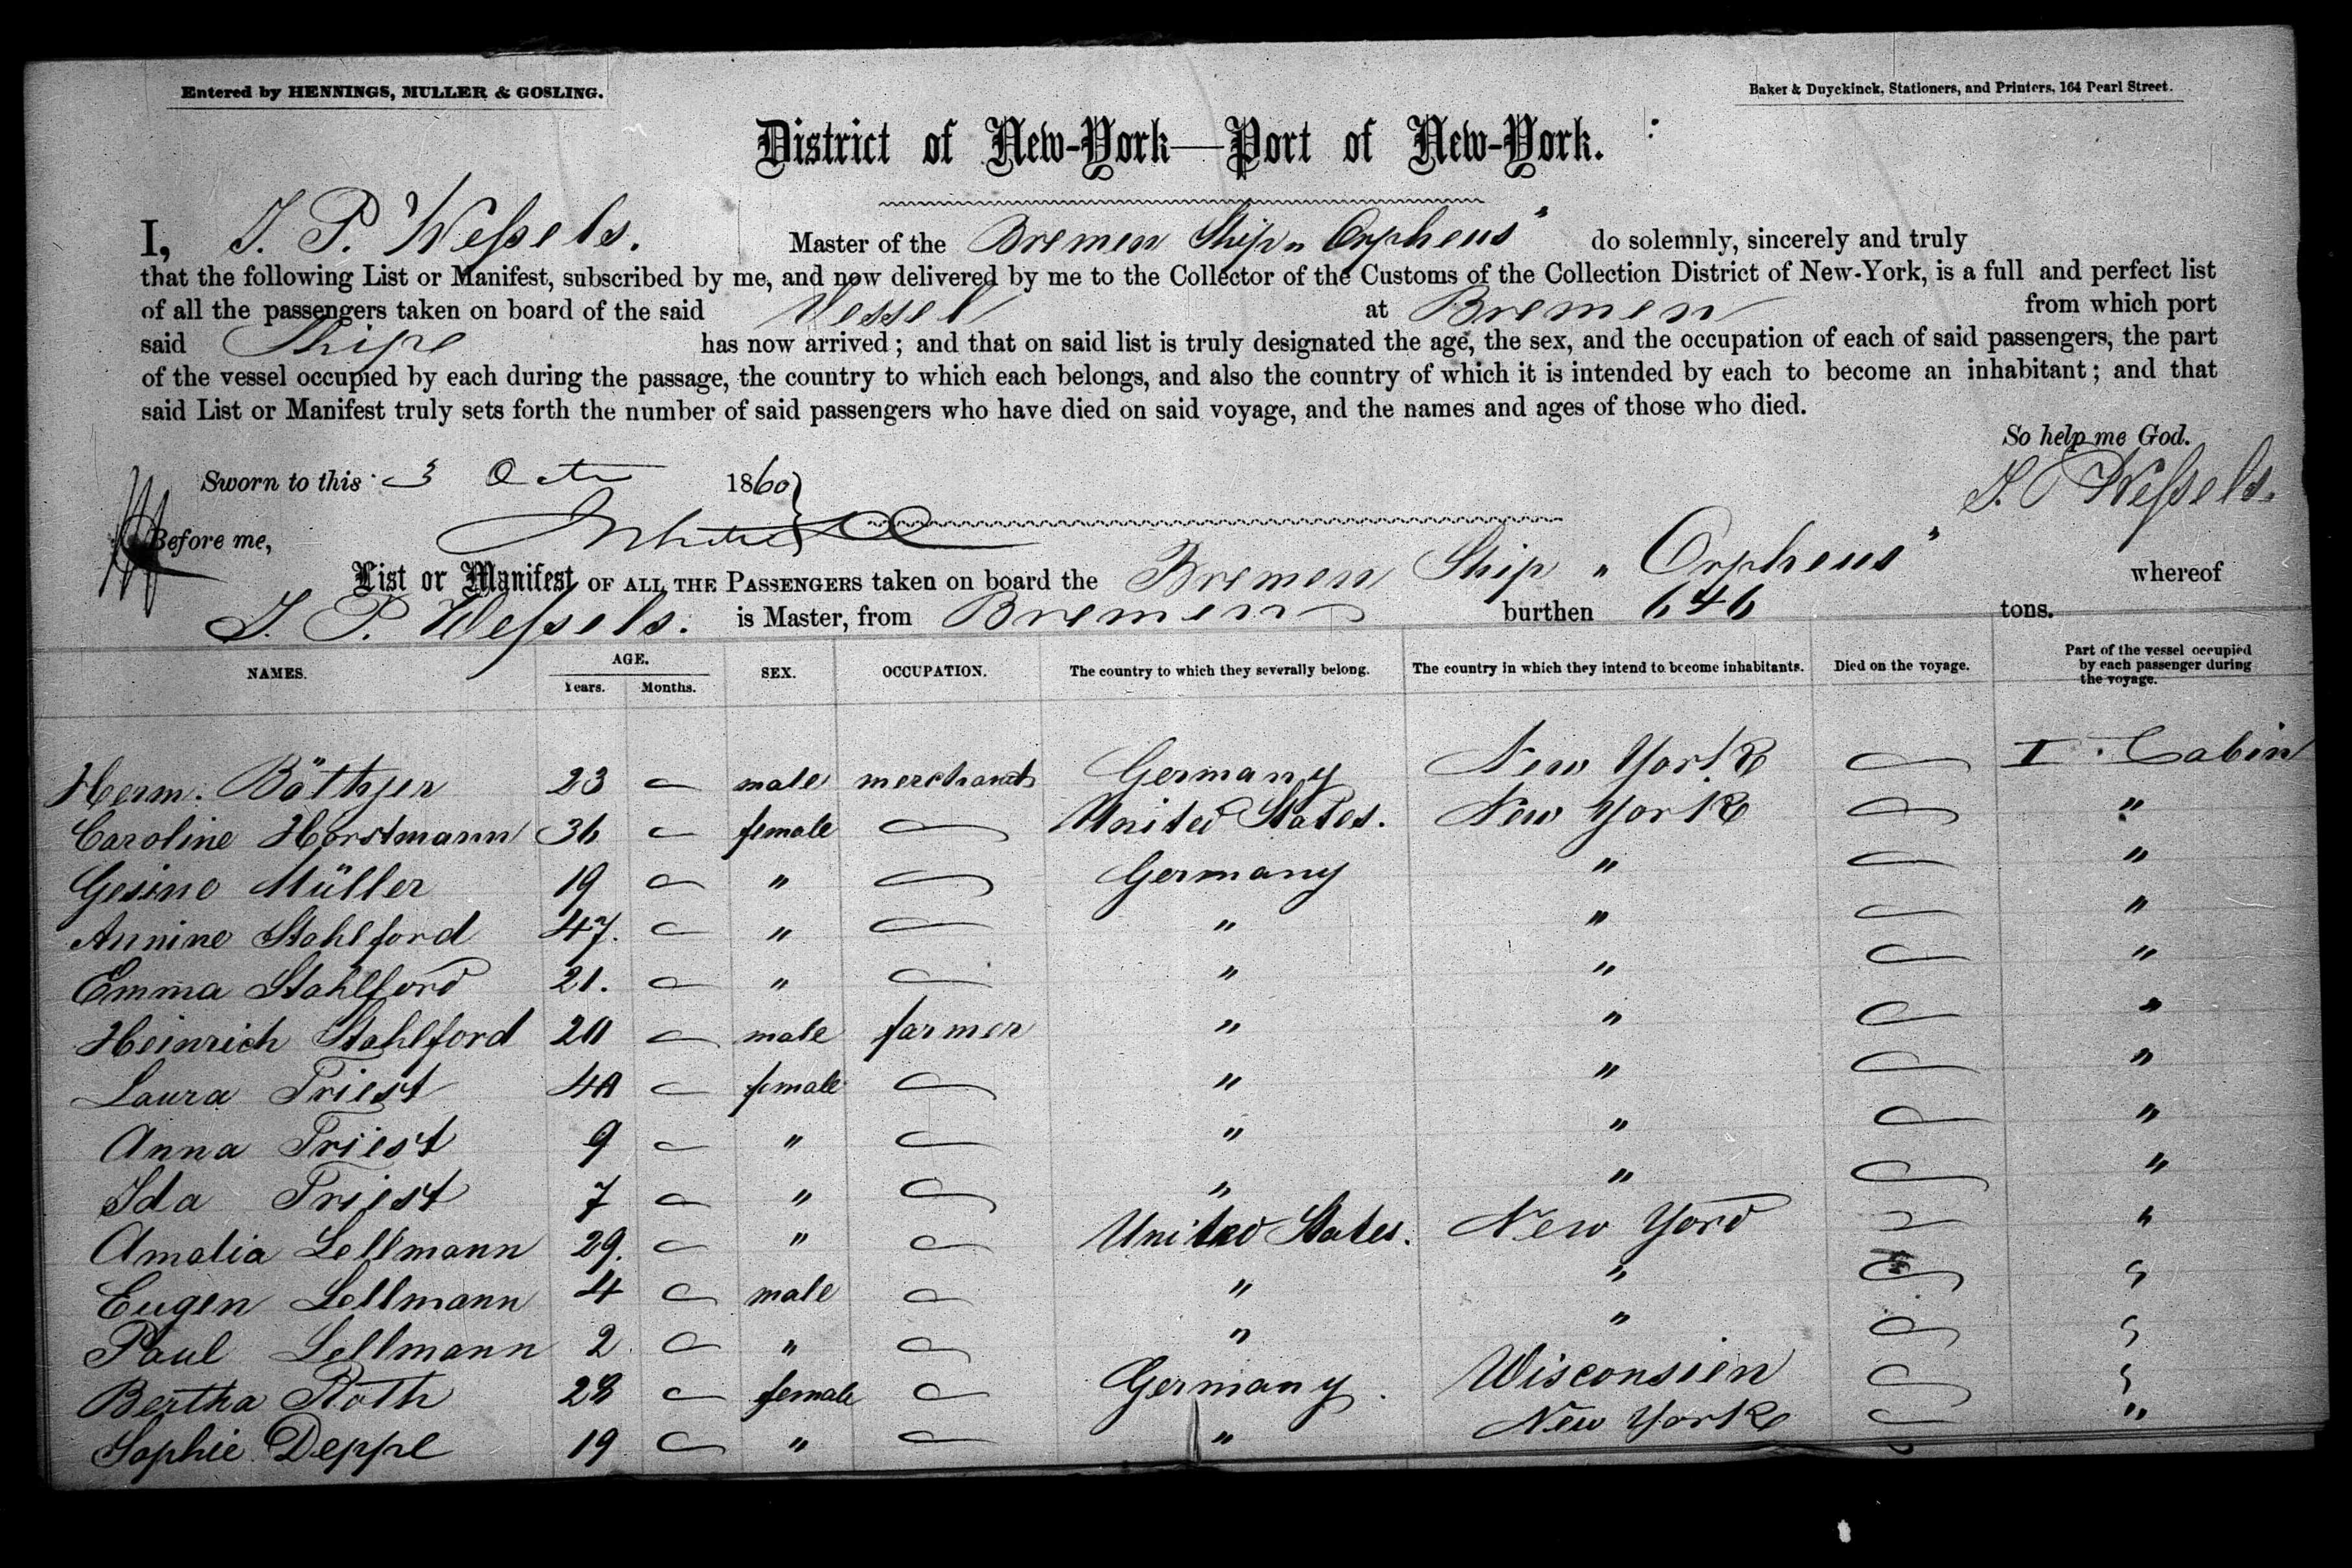 Entered by HENNINGS, MULLER & GOSLING.
Baker & Duyckinck, Stationers, and Printers, 164 Pearl Street.
District of New-York—Port of New-York.
I, J. P. Wessels. Master of the Bremen Ship „Orpheus" do solemnly, sincerely and truly
that the following List or Manifest, subscribed by me, and now delivered by me to the Collector of the Customs of the Collection District of New-York, is a full and perfect list
of all the passengers taken on board of the said Vessel at Bremen from which port
said Ship has now arrived; and that on said list is truly designated the age, the sex, and the occupation of each of said passengers, the part
of the vessel occupied by each during the passage, the country to which each belongs, and also the country of which it is intended by each to become an inhabitant; and that
said List or Manifest truly sets forth the number of said passengers who have died on said voyage, and the names and ages of those who died.
So help me God.
Sworn to this 3 Octr 1860 J. P Wessels.
Before me,
List or Manifest OF ALL THE PASSENGERS taken on board the Bremen Ship „Orpheus" whereof
J. P. Wessels. is Master, from Bremen burthen 646 tons.
NAMES. AGE. Years. Months. SEX. OCCUPATION. The country to which they severally belong. The country in which they intend to become inhabitants. Died on the voyage. Part of the vessel occupied by each passenger during the voyage.
Herm. Böthjer 23 — male merchant Germany New York — I. Cabin
Caroline Horstmann 36 — female — United States. New York — "
Gesine Müller 19 — " — Germany " — "
Annine Stahlford 47. — " — " " — "
Emma Stahlford 21. — " — " " — "
Heinrich Stahlford 20 — male farmer " " — "
Laura Triest 40 — female — " " — "
Anna Triest 9 — " — " " — "
Ida Triest 7 — " — " " — "
Amalia Lellmann 29. — " — United States. New York — "
Eugen Lellmann 4 — male — " " — "
Paul Lellmann 2 — " — " " — "
Bertha Roth 28 — female — Germany. Wisconsien — "
Sophie Deppe 19 — " — " New York — "